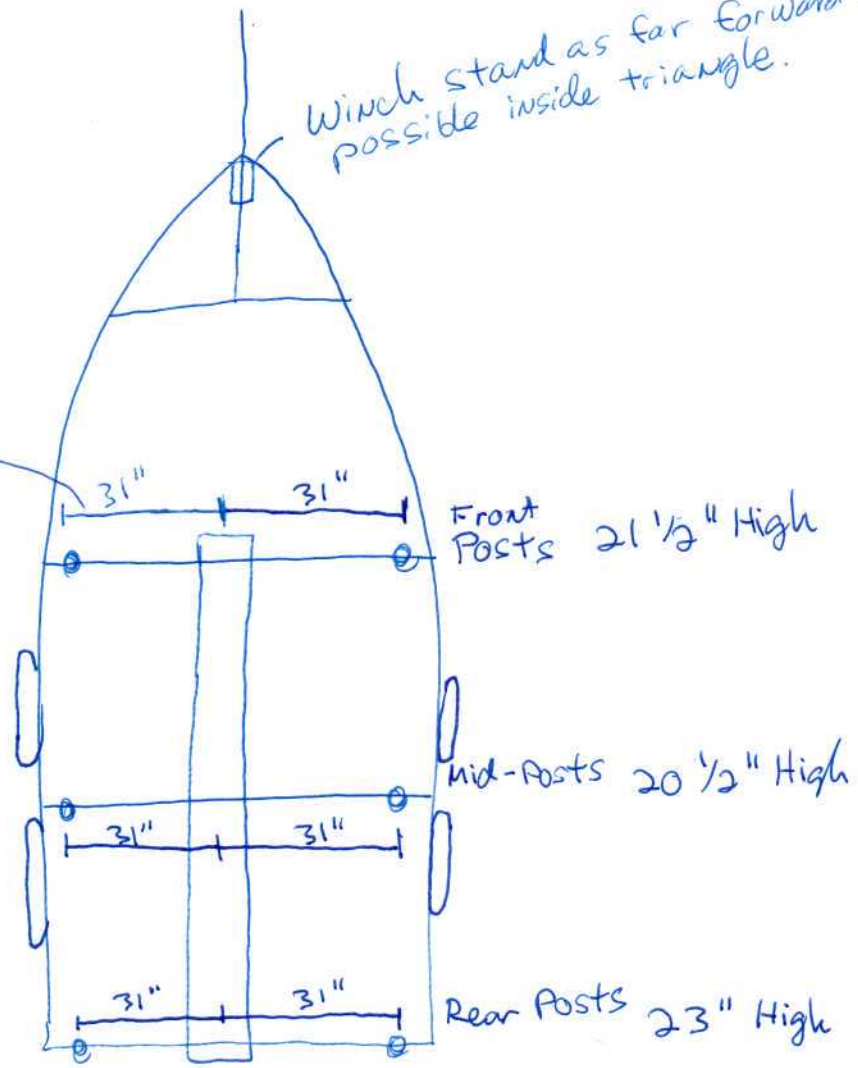 Winch stand as far forward
possible inside triangle.
31" 31"
Front
Posts 21 1/2" High
Mid-Posts 20 1/2" High
31" 31"
31" 31"
Rear Posts 23" High